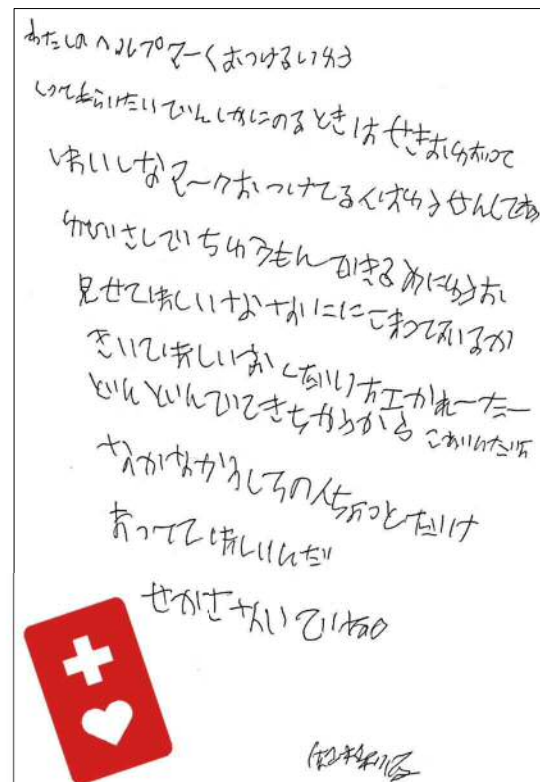 わたしのヘルプマークおつけるいゆう
しってもらいたいでんしゃにのるときはせきおゆずって
ほしいなマークおつけてる人はゆうせんしてね
ゆびさしでいちゅうもんができるめにゅうお
見せてほしいななにににこまっているか
きいてほしいな 下エかれーたー
どんどんでてきちゃうから こわいんだよ
なかなかうしろの人ちょっとだけ
まっててほしいんだ
せかさないでね。